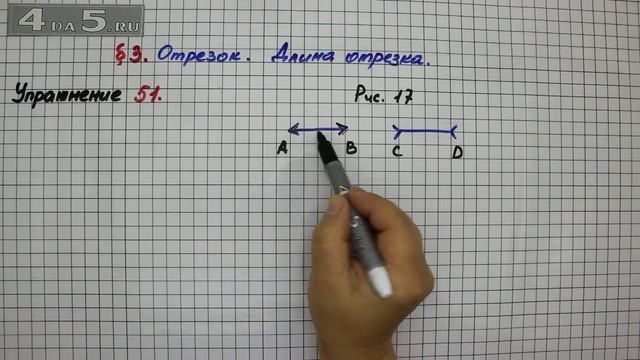 4ДА5.RU
§3. Отрезок. Длина отрезка.
Упражнение 51.
Рис. 17
A B C D